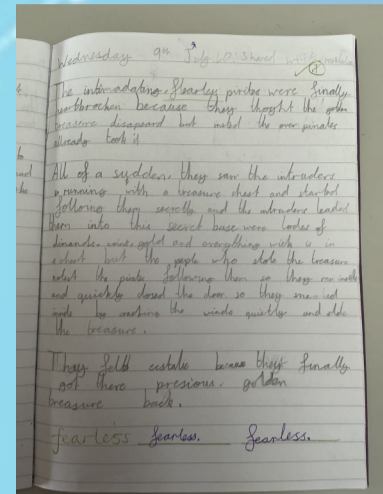 Wednesday 9th July LO Shared write
The intimadating, fearles pirites were finally
heartbrocken because they thoght the golden
treasure disapeard but insted the over pirates
allready took it.
All of a sudden, they saw the intruders
running with a treasure chest and started
following them secretly and the intruders leaded
them into this secret base were
gold and everything wich is in
a chest but the people who stole the treasure
the pirates following them so they ran inside
and quickly closed the door so they
inside by the window quietly and stole
the treasure.
They felt because they finally
got there presious, golden
treasure back.
fearless fearless. fearless.